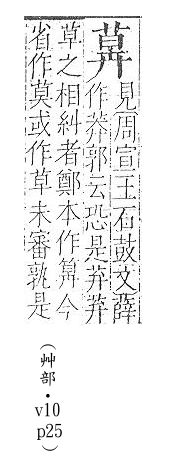 見周宣王石鼓文薛
作莽郭云恐是莽莽
草之相糾者鄭本作今
省作莫或作草未審孰是
(艸部・v10
p25)